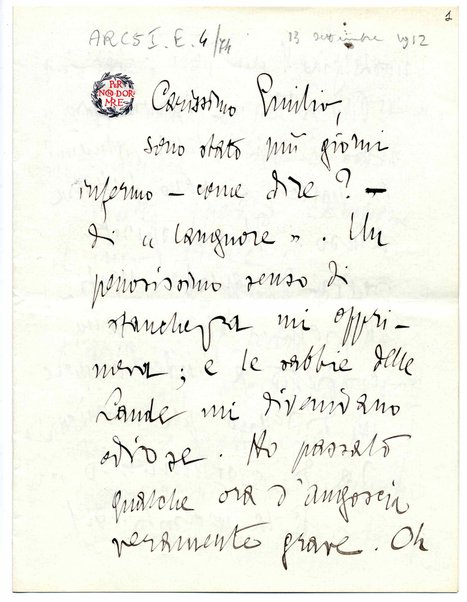 1
ARC5 I. E. 4/74 13 settembre 1912
PER
NON DOR
MIRE
Carissimo Emilio,
sono stato più giorni
infermo – come dire? –
di « languore ». Un
penosissimo senso di
stanchezza mi oppri-
meva; e le sabbie delle
Lande mi divenivano
odiose. Ho passato
qualche ora d'angoscia
veramente grave. Oh